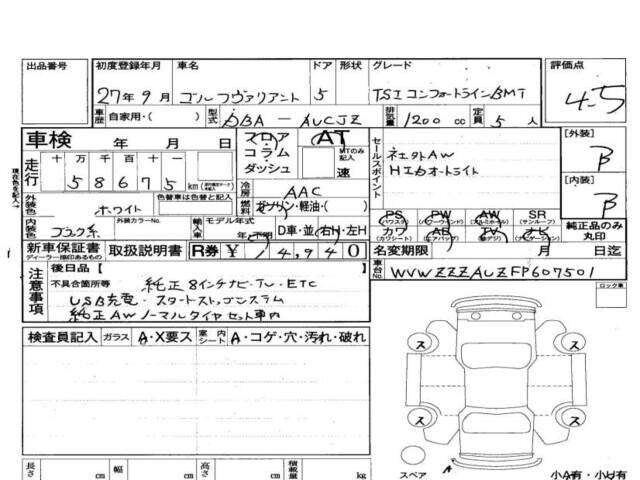 出品番号 初度登録年月 車名 ドア 形状 グレード 評価点
27年9月 ゴルフヴァリアント 5 TSIコンフォートラインBMT 4-5
車歴 自家用・( ) 型式 DBA-AUCJZ 排気量 1200 cc 定員 5 人
車検 年 月 日 フロア・コラム・ダッシュ AT MTのみ記入 速
走行 十 万 千 百 十
58675 km
セールスポイント
社外AW
HIDオートライト
[外装] B
[内装] B
外装色 ホワイト 色替車は色替と記入 冷房 AAC
燃料 ガソリン・軽油・( )
内装色 ブラック系 外装カラーNo. 輸入車 モデル年式 年・不明 D車・並 右H・左H
PS PW AW SR
(パワステ) (パワーウインド) (アルミホイール) (サンルーフ)
カワ AB TV ナビ
(カワシート) (エアバッグ) (ナビゲーション)
純正品のみ丸印
新車保証書 取扱説明書 R券 ¥14,940 名変期限 月 日迄
ディーラー捺印のあるもの
現在色を記入
注意事項
後日品 [ ]
不具合箇所等 純正8インチナビ・TV・ETC
USB充電・スタートストップシステム
純正AWノーマルタイヤセット車内
車台No. WVWZZZAUZFP607501
ロック車
検査員記入 ガラス A・X要ス 室内シート A・コゲ・穴・汚れ・破れ
ス ス
ス ス
スペア A
長さ cm 幅 cm 高さ cm 積載量 kg
小A有・小U有